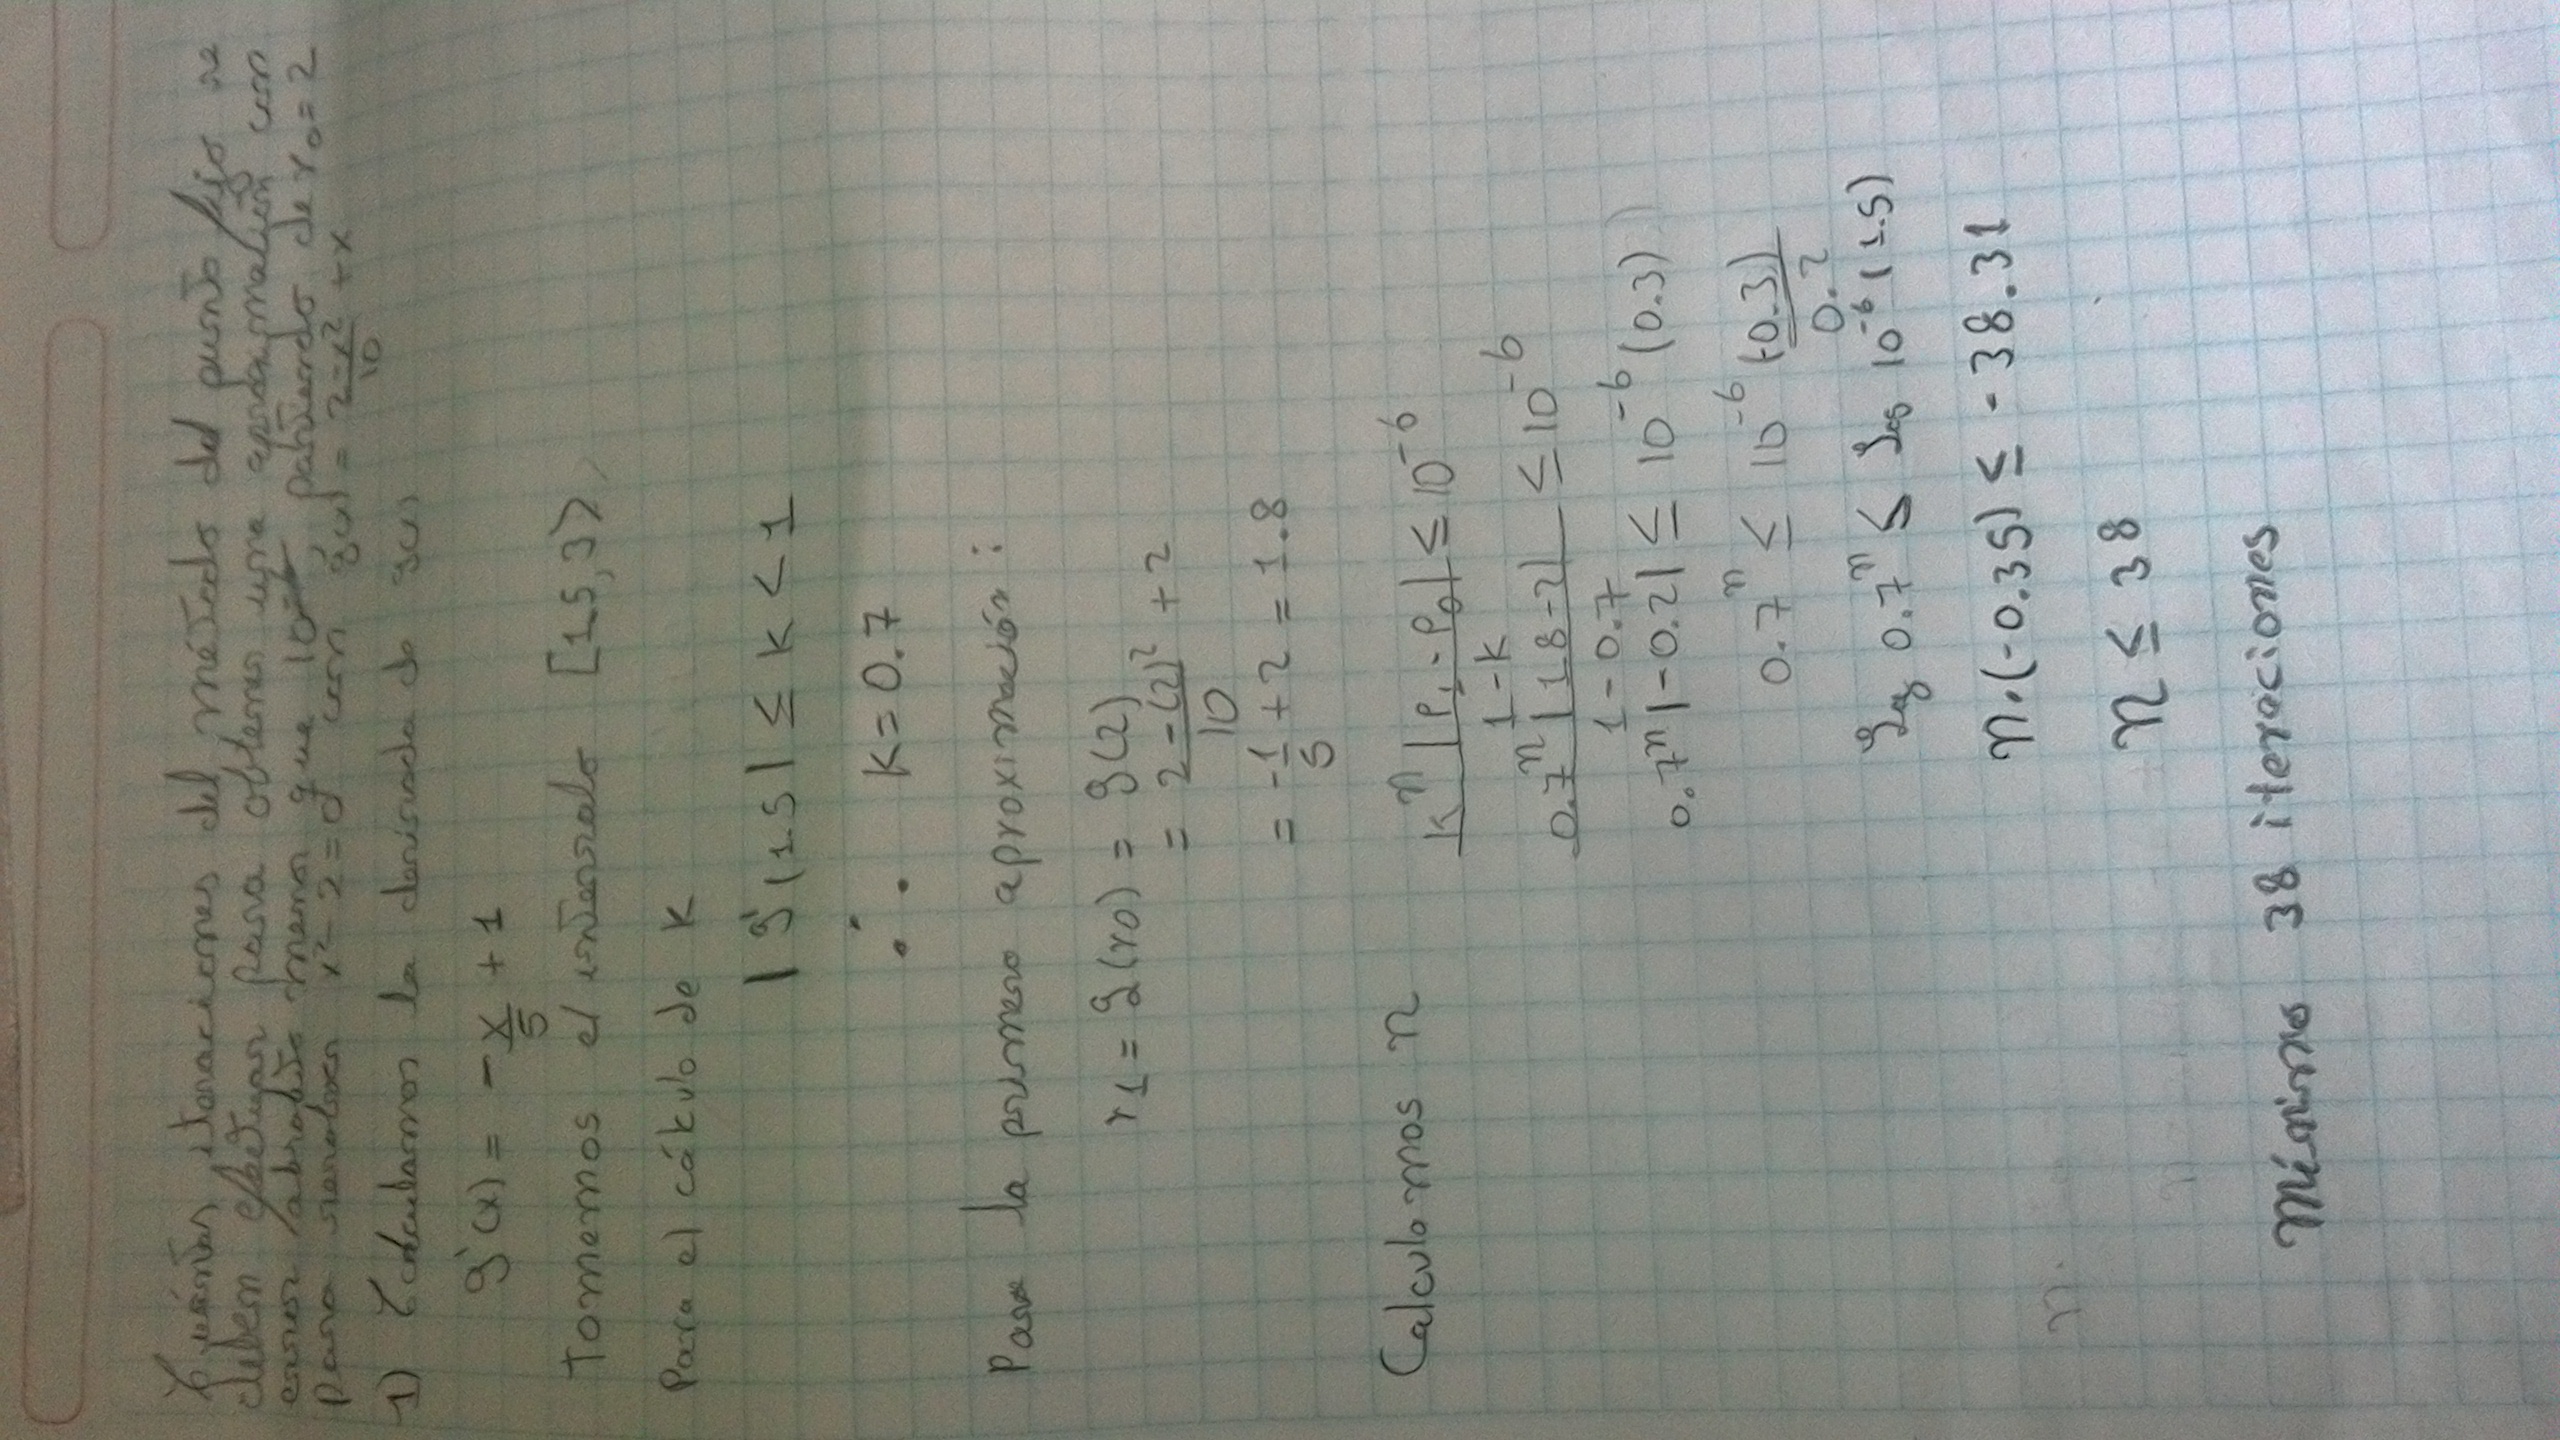 Cuántas iteraciones del método del punto fijo se
deben efectuar para obtener una aproximación con
error absoluto menor que 10⁻⁶, partiendo de r₀ = 2
para resolver x² - 2 = 0 con g(x) = (2 - x²)/10 + x
1) Calculamos la derivada de g(x)
g'(x) = -x/5 + 1
Tomemos el intervalo [1.5, 3>
Para el cálculo de K
|g'(1.5| ≤ k < 1
∴ K = 0.7
Para la primera aproximación :
r1 = g(r0) = g(2)
= (2 - (2)²)/10 + 2
= -1/5 + 2 = 1.8
Calculamos n
k^n |P₁ - P₀| / (1 - k) ≤ 10⁻⁶
0.7^n |1.8 - 2| / (1 - 0.7) ≤ 10⁻⁶
0.7^n |-0.2| ≤ 10⁻⁶ (0.3)
0.7^n ≤ 10⁻⁶ (0.3)/0.2
Log 0.7^n ≤ Log 10⁻⁶ (1.5)
n.(-0.35) ≤ -38.31
n ≤ 38
Mínimo 38 iteraciones